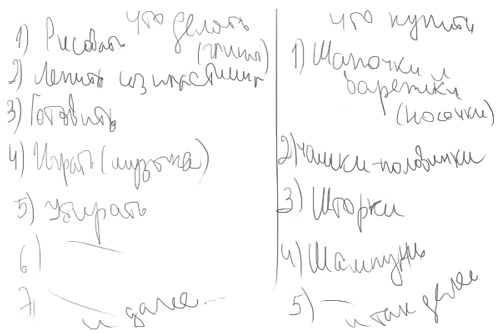 Что делать
1) Рисовать
2) Лепить из пластилина
(глина)
3) Готовить
4) Играть (музыка)
5) Убирать
6)
7)
и далее
Что купить
1) Шапочки и
варежки
(носочки)
2) чашки-половинки
3) Шторки
4) Шампунь
5)
и так далее